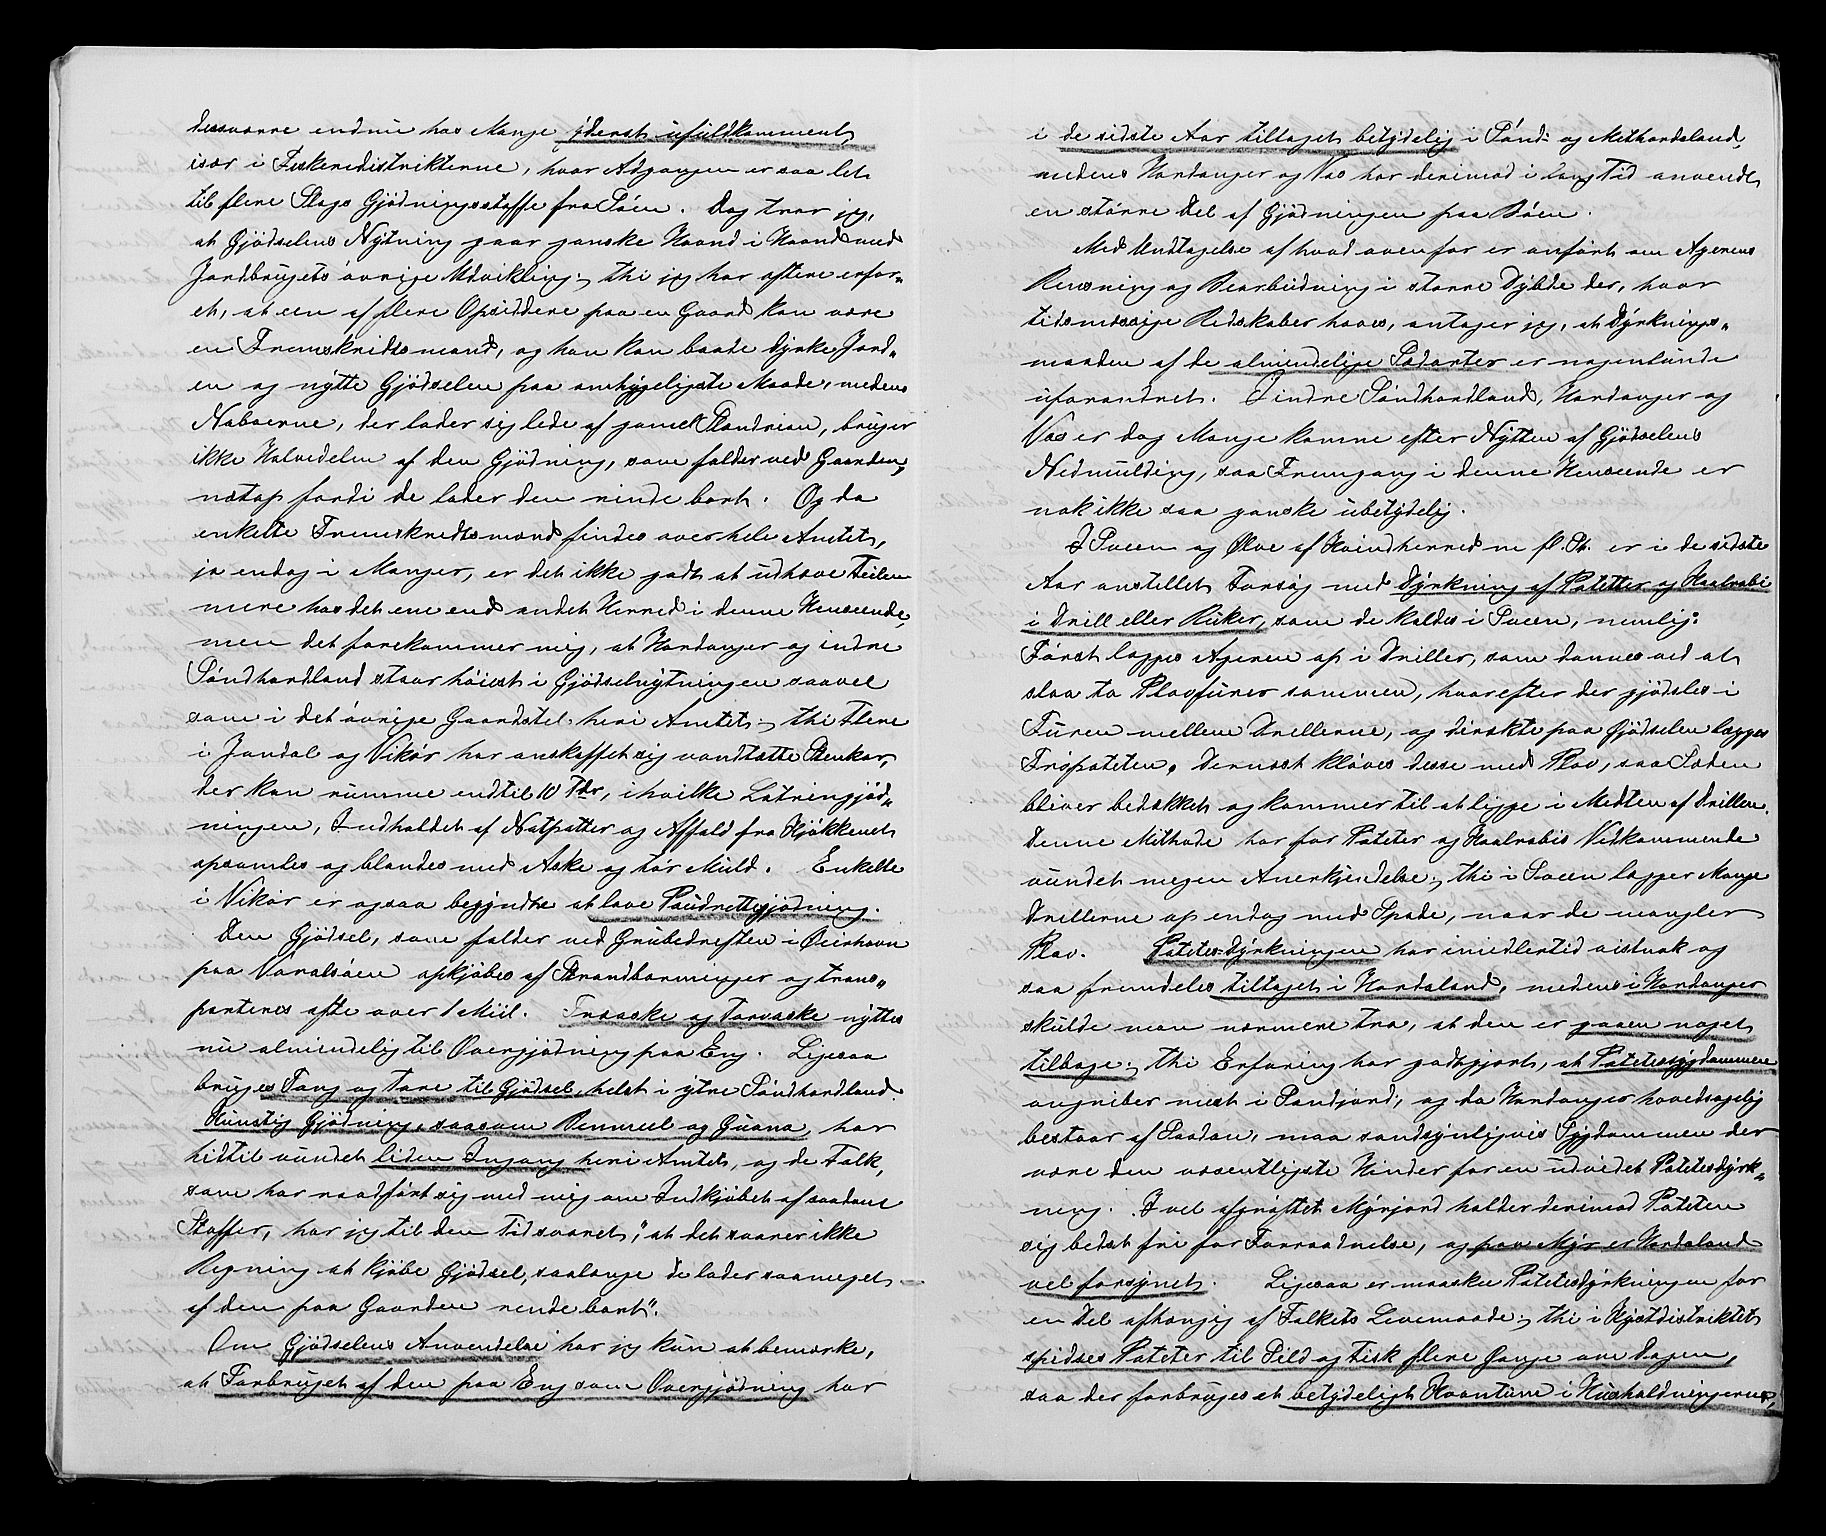 desværre endnu hos Mange yderst ufuldkomment,
især i Fiskeridistrikterne, hvor Adgangen er saa let
til flere Slags Gjødningsstoffe fra Søen. Dog tror jeg,
at Gjødselens Nytning gaar ganske Haand i Haand med
Jordbrugets øvrige Udvikling; thi jeg har oftere erfar„
et, at een af flere Opsiddere paa en Gaard kan være
en Fremskridtsmand, og han kan baade dyrke Jord„
en og nytte Gjødselen paa omhyggeligste Maade, medens
Naboerne, der lader sig lede af gamel Slendrian, bruger
ikke Halvedelen af den Gjødning, som falder ved Gaarden,
netop fordi de lader den rinde bort. Og da
enkelte Fremskridtsmænd findes over hele Amtet,
ja endog i Manger, er det ikke godt at udhæve Feilen
mere hos det ene end andet Herred i denne Henseende,
men det forekommer mig, at Hardanger og indre
Søndhordland staar høiest i Gjødselnytningen saavel
som i det øvrige Gaardstel heri Amtet; thi Flere
i Jondal og Vikør har anskaffet sig vandtætte Stenkar,
der kan rumme endtil 10 Tdr, i hvilke Latringjød„
ningen, Indholdet af Natpotter og Affald fra Kjøkkenet
opsamles og blandes med Aske og tør Muld. Enkelte
i Vikør er ogsaa begyndte at lave Poudrettegjødning.
Den Gjødsel, som falder ved Grubedriften i Ølerhavn
paa Varalsøen opkjøbes af Strandbarminger og trans„
porteres ofte over 1 Miil. Træaske og Torvaske nyttes
nu almindelig til Overgjødning paa Eng. Ligesaa
bruges Tang og Tare til Gjødsel, helst i ytre Søndhordland.
Kunstig Gjødning, saasom Benmeel og Guano, har
hidtil vundet liden Indgang heri Amtet, og de Folk,
som har raadført sig med mig om Indkjøbet af saadant
Stoffer, har jeg til den Tid svaret, „at det svarer ikke
Regning at kjøbe Gjødsel, saalænge de lader saameget
af den paa Gaarden rende bort“.
Om Gjødselens Anvendelse har jeg kun at bemærke,
at Forbruget af den paa Eng som Overgjødning har
i de sidste Aar tiltaget betydelig i Sønd- og Mithordaland,
medens Hardanger og Vos har derimod i lang Tid anvendt
en større Del af Gjødningen paa Bøen.
Med Undtagelse af hvad ovenfor er anført om Agerens
Rensning og Bearbeidning i større Dybde der, hvor
tidsmæssige Redskaber haves, antager jeg, at Dyrknings„
maaden af de almindelige Sædarter er nogenlunde
uforandret. I indre Søndhordland, Hardanger og
Vos er dog Mange komne efter Nytten af Gjødselens
Nedmulding, saa Fremgang i denne Henseende er
nok ikke saa ganske ubetydelig.
I Sveen og Ølve af Kvindherred m. fl. St. er i de sidste
Aar anstillet Forsøg med Dyrkning af Poteter og Kaalrabi
i Drill eller Ruker, som de kaldes i Sveen, nemlig:
Først lægges Ageren op i Driller, som dannes ved at
slaa to Plovfurer sammen, hvorefter der gjødsles i
Furen mellem Drillerne, og direkte paa Gjødselen lægges
Frøpoteten. Dernæst kløves disse med Plov, saa Sæden
bliver bedækket og kommer til at ligge i Midten af Drillen.
Denne Methode har for Poteter og Kaalrabis Vedkommende
vundet megen Anerkjendelse; thi i Sveen lægger Mange
Drillerne op endog med Spade, naar de mangler
Plov. Potetesdyrkningen har imidlertid vistnok og
saa fremdeles tiltaget i Hordaland, medens i Hardanger
skulde man nærmere tro, at den er gaaen noget
tilbage; thi Erfaring har godtgjort, at Potetessygdommene
angriber mest i Sandjord, og da Hardanger hovedsagelig
bestaar af Saadan, maa sandsynligvis Sygdommen der
være den væsentligste Hinder for en udvidet Potetesdyrk„
ning. I vel afgrøftet Myrjord holder derimod Poteten
sig bedst fri for Forraadnelse, og paa Myr er Hordaland
vel forsynet. Ligesaa er maaskee Potetesdyrkningen for
en Del afhængig af Folkets Levemaade; thi i Kystdistriktet
spises Poteter til Sild og Fisk flere Gange om Dagen,
saa der forbruges et betydeligt Kvantum i Husholdningerne,